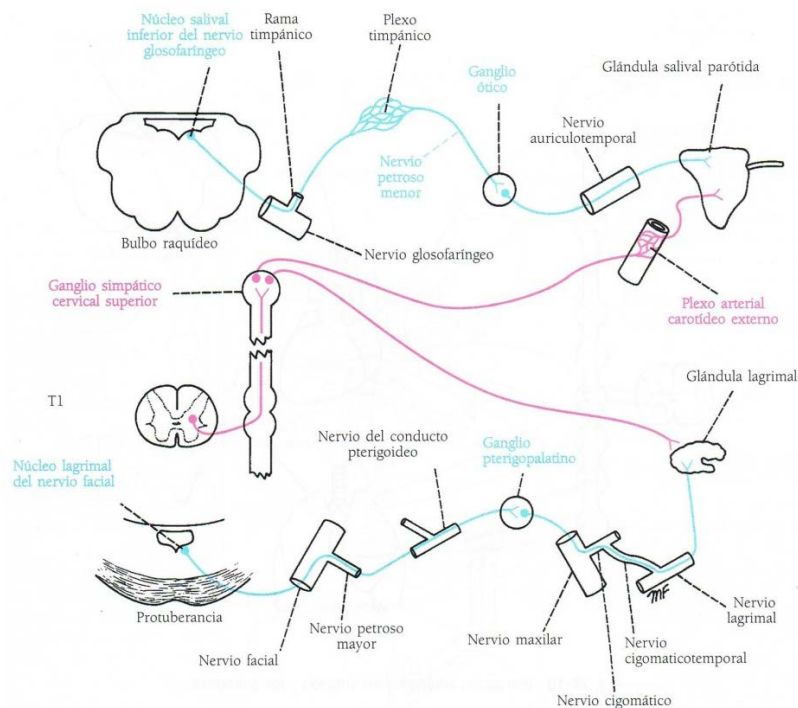 Núcleo salival
inferior del nervio
glosofaríngeo
Rama
timpánico
Plexo
timpánico
Ganglio
ótico
Glándula salival parótida
Nervio
auriculotemporal
Nervio
petroso
menor
Bulbo raquídeo
Nervio glosofaríngeo
Ganglio simpático
cervical superior
Plexo arterial
carotídeo externo
Glándula lagrimal
T1
Nervio del conducto
pterigoideo
Ganglio
pterigopalatino
Núcleo lagrimal
del nervio facial
Protuberancia
Nervio facial
Nervio petroso
mayor
Nervio maxilar
Nervio
cigomaticotemporal
Nervio
lagrimal
MF
Nervio cigomático